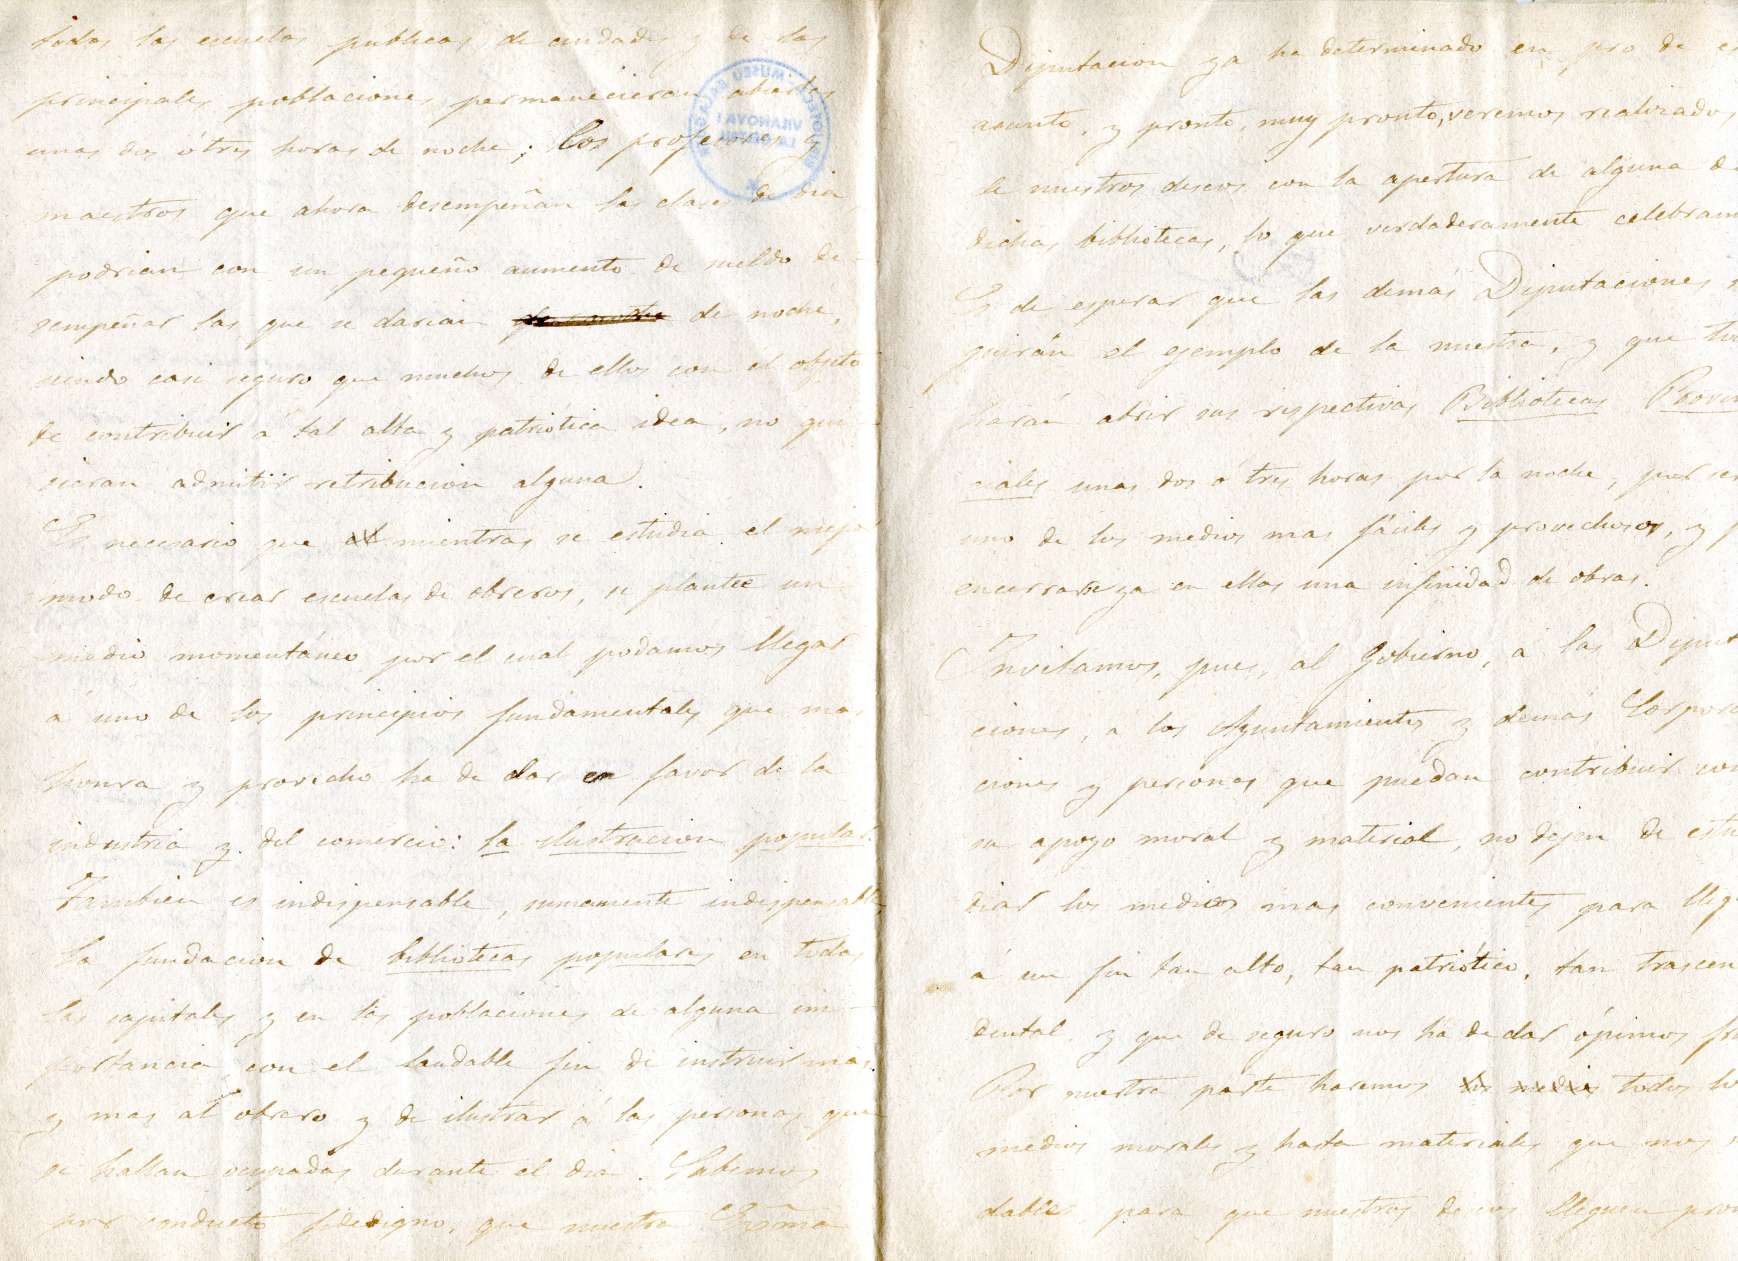 todas las escuelas públicas de ciudades y de las
principales poblaciones permanecieran abiertas
unas dos ó tres horas de noche; los profesores y
maestros que ahora desempeñan las clases de dia,
podrian con un pequeño aumento de sueldo de-
sempeñar las que se darian de noche,
siendo casi seguro que muchos de ellos con el objeto
de contribuir á tal alta y patriótica idea, no qui-
sieran admitir retribucion alguna.
Es necesario que mientras se estudia el mejor
modo de crear escuelas de obreros, se plantee un
medio momentáneo por el cual podamos llegar
á uno de los principios fundamentales que mas
honra y provecho ha de dar en favor de la
industria y del comercio: la ilustracion popular.
Tambien es indispensable, sumamente indispensable
la fundacion de bibliotecas populares en todas
las capitales y en las poblaciones de alguna im-
portancia con el laudable fin de instruir mas
y mas al obrero y de ilustrar á las personas que
se hallan ocupadas durante el dia. Sabemos
por conducto fidedigno, que nuestra Exma
Diputacion ya ha determinado en pro de es
asunto, y pronto, muy pronto, veremos realizados
de nuestros deseos con la apertura de alguna de
dichas bibliotecas, lo que verdaderamente celebram
Es de esperar que las demás Diputaciones s
guirán el ejemplo de la nuestra, y que to
harán abrir sus respectivas Bibliotecas Provin
ciales unas dos ó tres horas por la noche, por ser
uno de los medios mas fáciles y provechosos, y p
encerrarse ya en ellas una infinidad de obras.
Invitamos, pues, al Gobierno, á las Diputa
ciones, a los Ayuntamientos y demás Corpora
ciones y personas que puedan contribuir con
su apoyo moral y material, no dejen de estu
diar los medios mas convenientes para lleg
á un fin tan alto, tan patriótico, tan trascen
dental y que de seguro nos ha de dar ópimos fru
Por nuestra parte haremos los medios todos lo
medios morales y hasta materiales que nos s
dables para que nuestros deseos lleguen pron